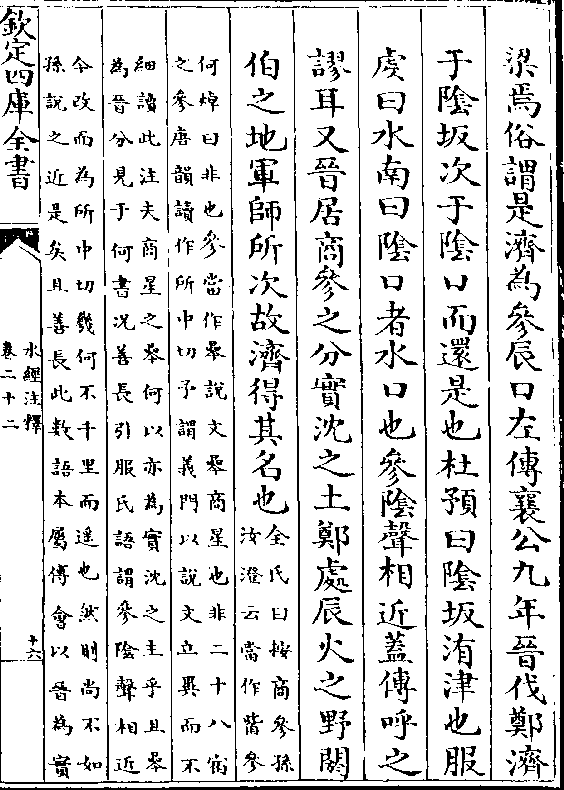 梁焉俗謂是濟為參辰口左傳襄公九年晉伐鄭濟
于陰坂次于陰口而還是也杜預曰陰坂洧津也服
虔曰水南曰陰口者水口也參陰聲相近蓋傳呼之
謬耳又晉居商參之分實沈之土鄭處辰火之野閼
伯之地軍師所次故濟得其名也
全氏曰按商參孫
汝澄云當作觜參
何焯曰非也參當作曑說文曑商星也非二十八宿
之參唐韻讀作所中切予謂義門以說文立異而不
細讀此注夫商星之曑何以亦為實沈之主乎且曑
為晉分見于何書况善長引服氏語謂參陰聲相近
今改而為所中切幾何不千里而遥也然則尚不如
孫說之近是矣且善長此數語本屬傅會以晉為實
欽定四庫全書
水經注釋
卷二十二
十六